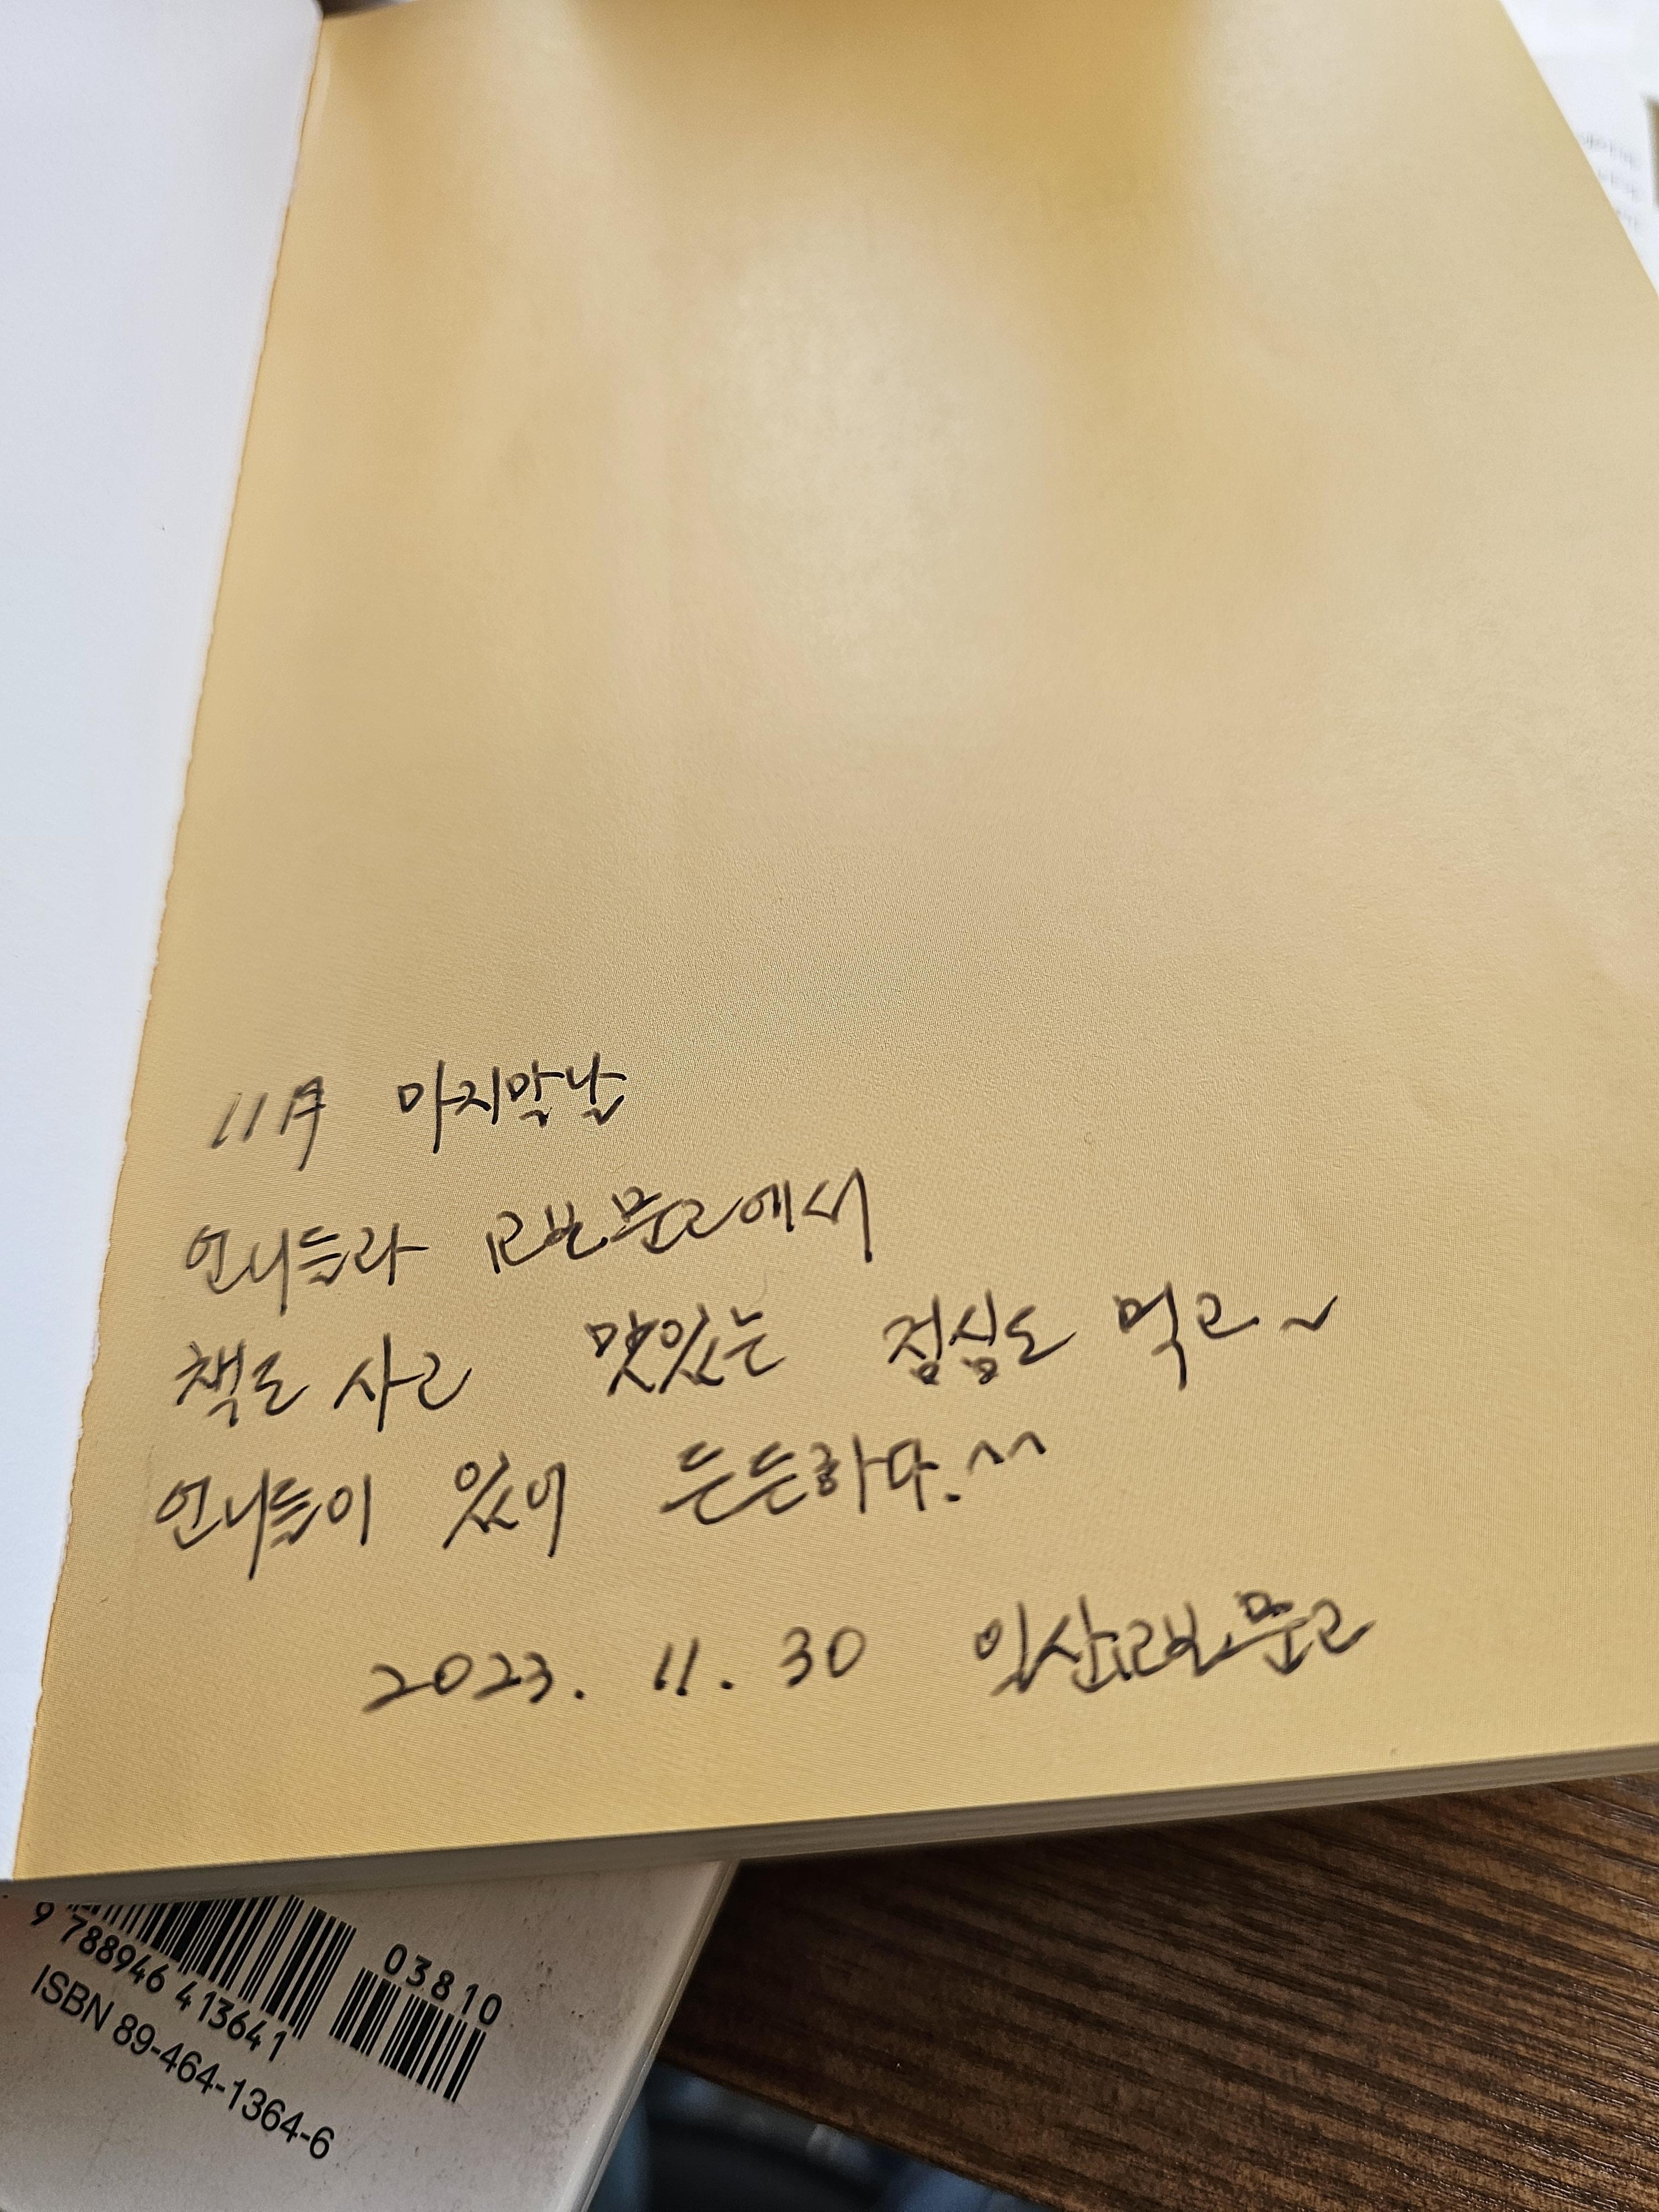 11月 마지막날
언니들과 교보문고에서
책도 사고 맛있는 점심도 먹고~
언니들이 있어 든든하다.^^
2023. 11. 30 일산교보문고
03810
9 788946 413641
ISBN 89-464-1364-6